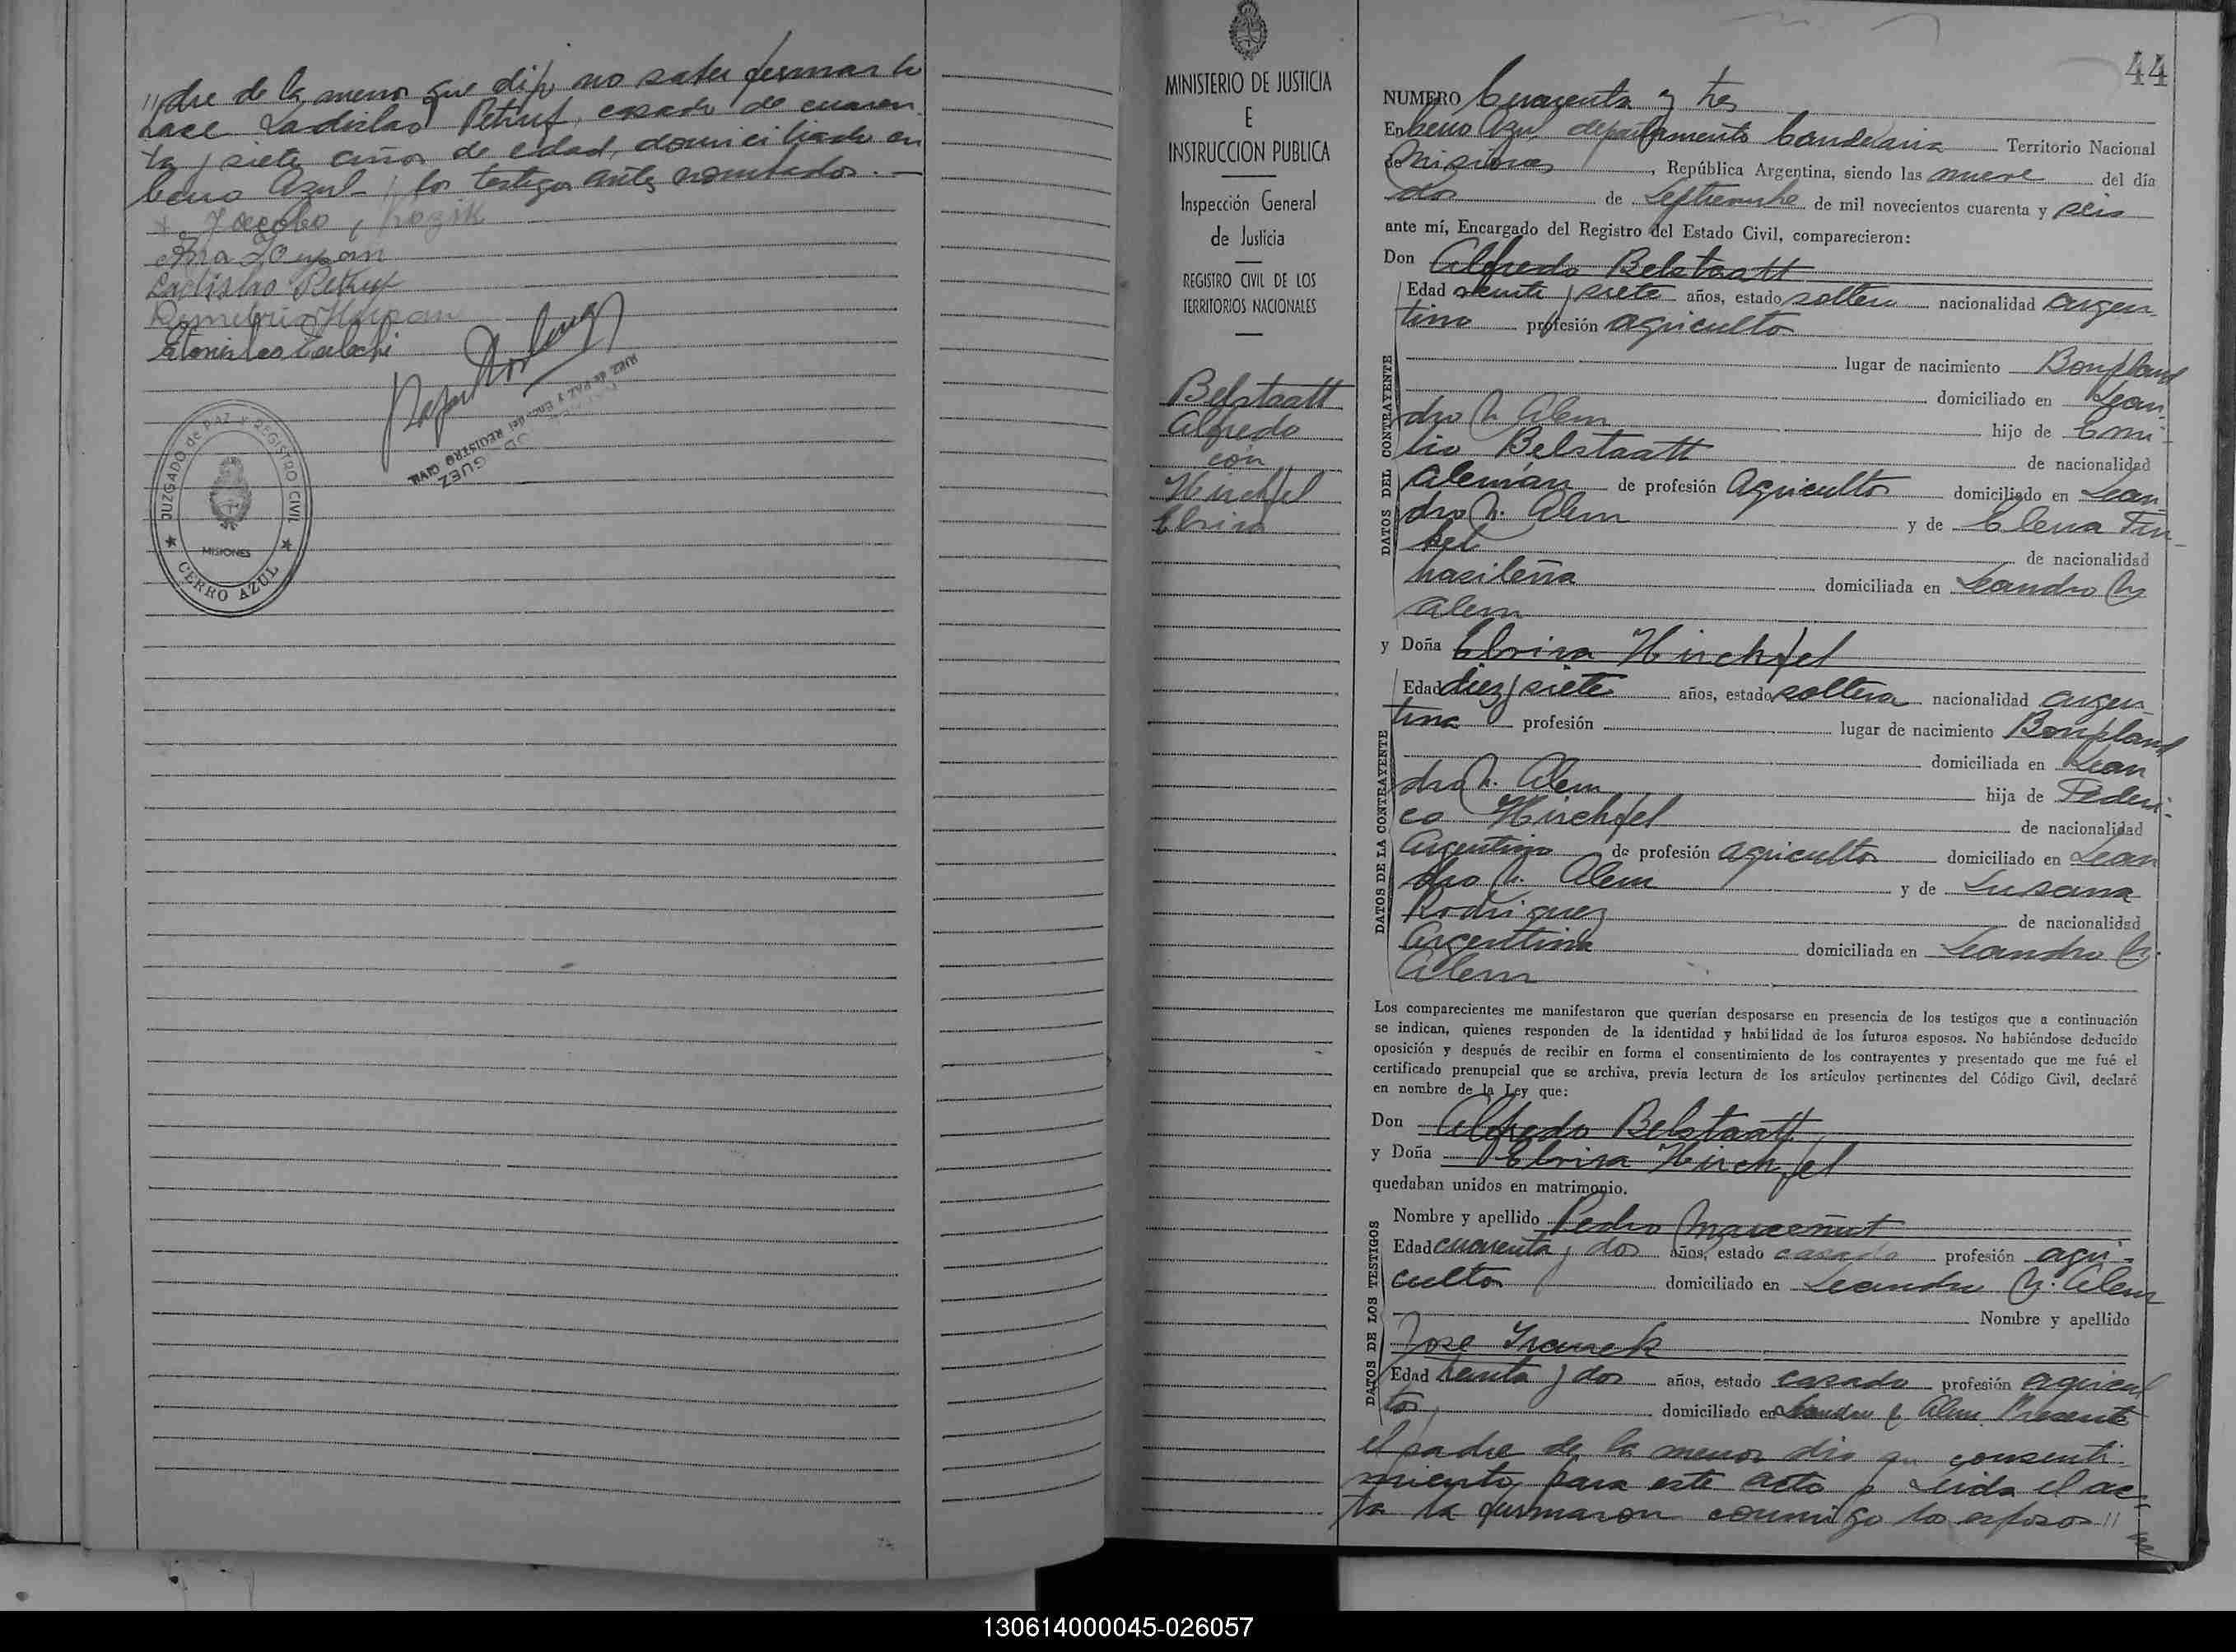 //dre de la menor que dijo no saber firmar lo
hace Ladislao Petruf, casado de cuaren
ta y siete años de edad, domiciliado en
Cerro Azul y los testigos antes nombrados.—
Jacobo Kozik
Ana
Ladislao Petruf
Demetrio
JUEZ de PAZ y Enc. del REGISTRO CIVIL
JUZGADO de PAZ Y REGISTRO CIVIL
MISIONES
CERRO AZUL
MINISTERIO DE JUSTICIA
E
INSTRUCCION PUBLICA
Inspección General
de Justicia
REGISTRO CIVIL DE LOS
TERRITORIOS NACIONALES
Belstaatt
Alfredo
con
Hirchfel
Elvira
44
NUMERO Cuarenta y tres
En Cerro Azul departamento Candelaria Territorio Nacional
de Misiones, República Argentina, siendo las nueve del día
dos de Septiembre de mil novecientos cuarenta y seis
ante mí, Encargado del Registro del Estado Civil, comparecieron:
Don Alfredo Belstaatt
DATOS DEL CONTRAYENTE
Edad veinte y siete años, estado soltero nacionalidad argen-
tino profesión agricultor
lugar de nacimiento Bonpland
domiciliado en Lean-
dro N. Alem hijo de Emi-
lio Belstaatt de nacionalidad
Alemán de profesión Agricultor domiciliado en Lean
dro N. Alem y de Elena
de nacionalidad
brasileña domiciliada en Leandro N.
Alem
y Doña Elvira Hirchfel
DATOS DE LA CONTRAYENTE
Edad diez y siete años, estado soltera nacionalidad argen-
tina profesión lugar de nacimiento Bonpland
domiciliada en Lean
dro N. Alem hija de Federi-
co Hirchfel de nacionalidad
Argentino de profesión agricultor domiciliado en Lean
dro N. Alem y de Susana
Rodriguez de nacionalidad
Argentina domiciliada en Leandro N.
Alem
Los comparecientes me manifestaron que querían desposarse en presencia de los testigos que a continuación
se indican, quienes responden de la identidad y habilidad de los futuros esposos. No habiéndose deducido
oposición y después de recibir en forma el consentimiento de los contrayentes y presentado que me fué el
certificado prenupcial que se archiva, previa lectura de los artículos pertinentes del Código Civil, declaré
en nombre de la Ley que:
Don Alfredo Belstaatt
y Doña Elvira Hirchfel
quedaban unidos en matrimonio.
DATOS DE LOS TESTIGOS
Nombre y apellido Pedro
Edad cuarenta y dos años, estado casado profesión agri-
cultor domiciliado en Leandro N. Alem
Nombre y apellido
Jose
Edad treinta y dos años, estado casado profesión agricul
tor domiciliado en Leandro N. Alem Presente
el padre de la menor dio su consenti-
miento para este acto y Leida el ac-
ta la firmaron conmigo los esposos //
130614000045-026057